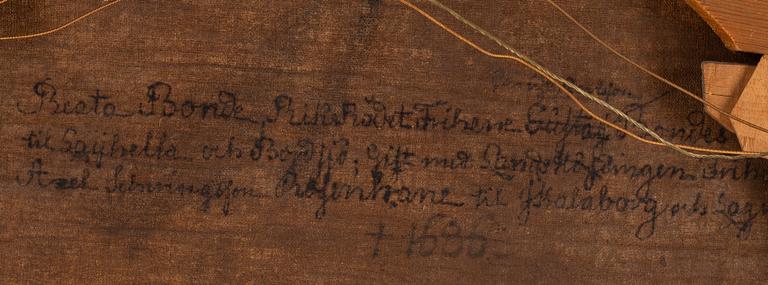 Beata Bonde, Riksrådet Friherre Gustaf Bondes
til Laÿhella och Bordsjö; gift med Landshöfdingen
Axel Scheringsson Rosenhane til Skalaborg och
† 1686